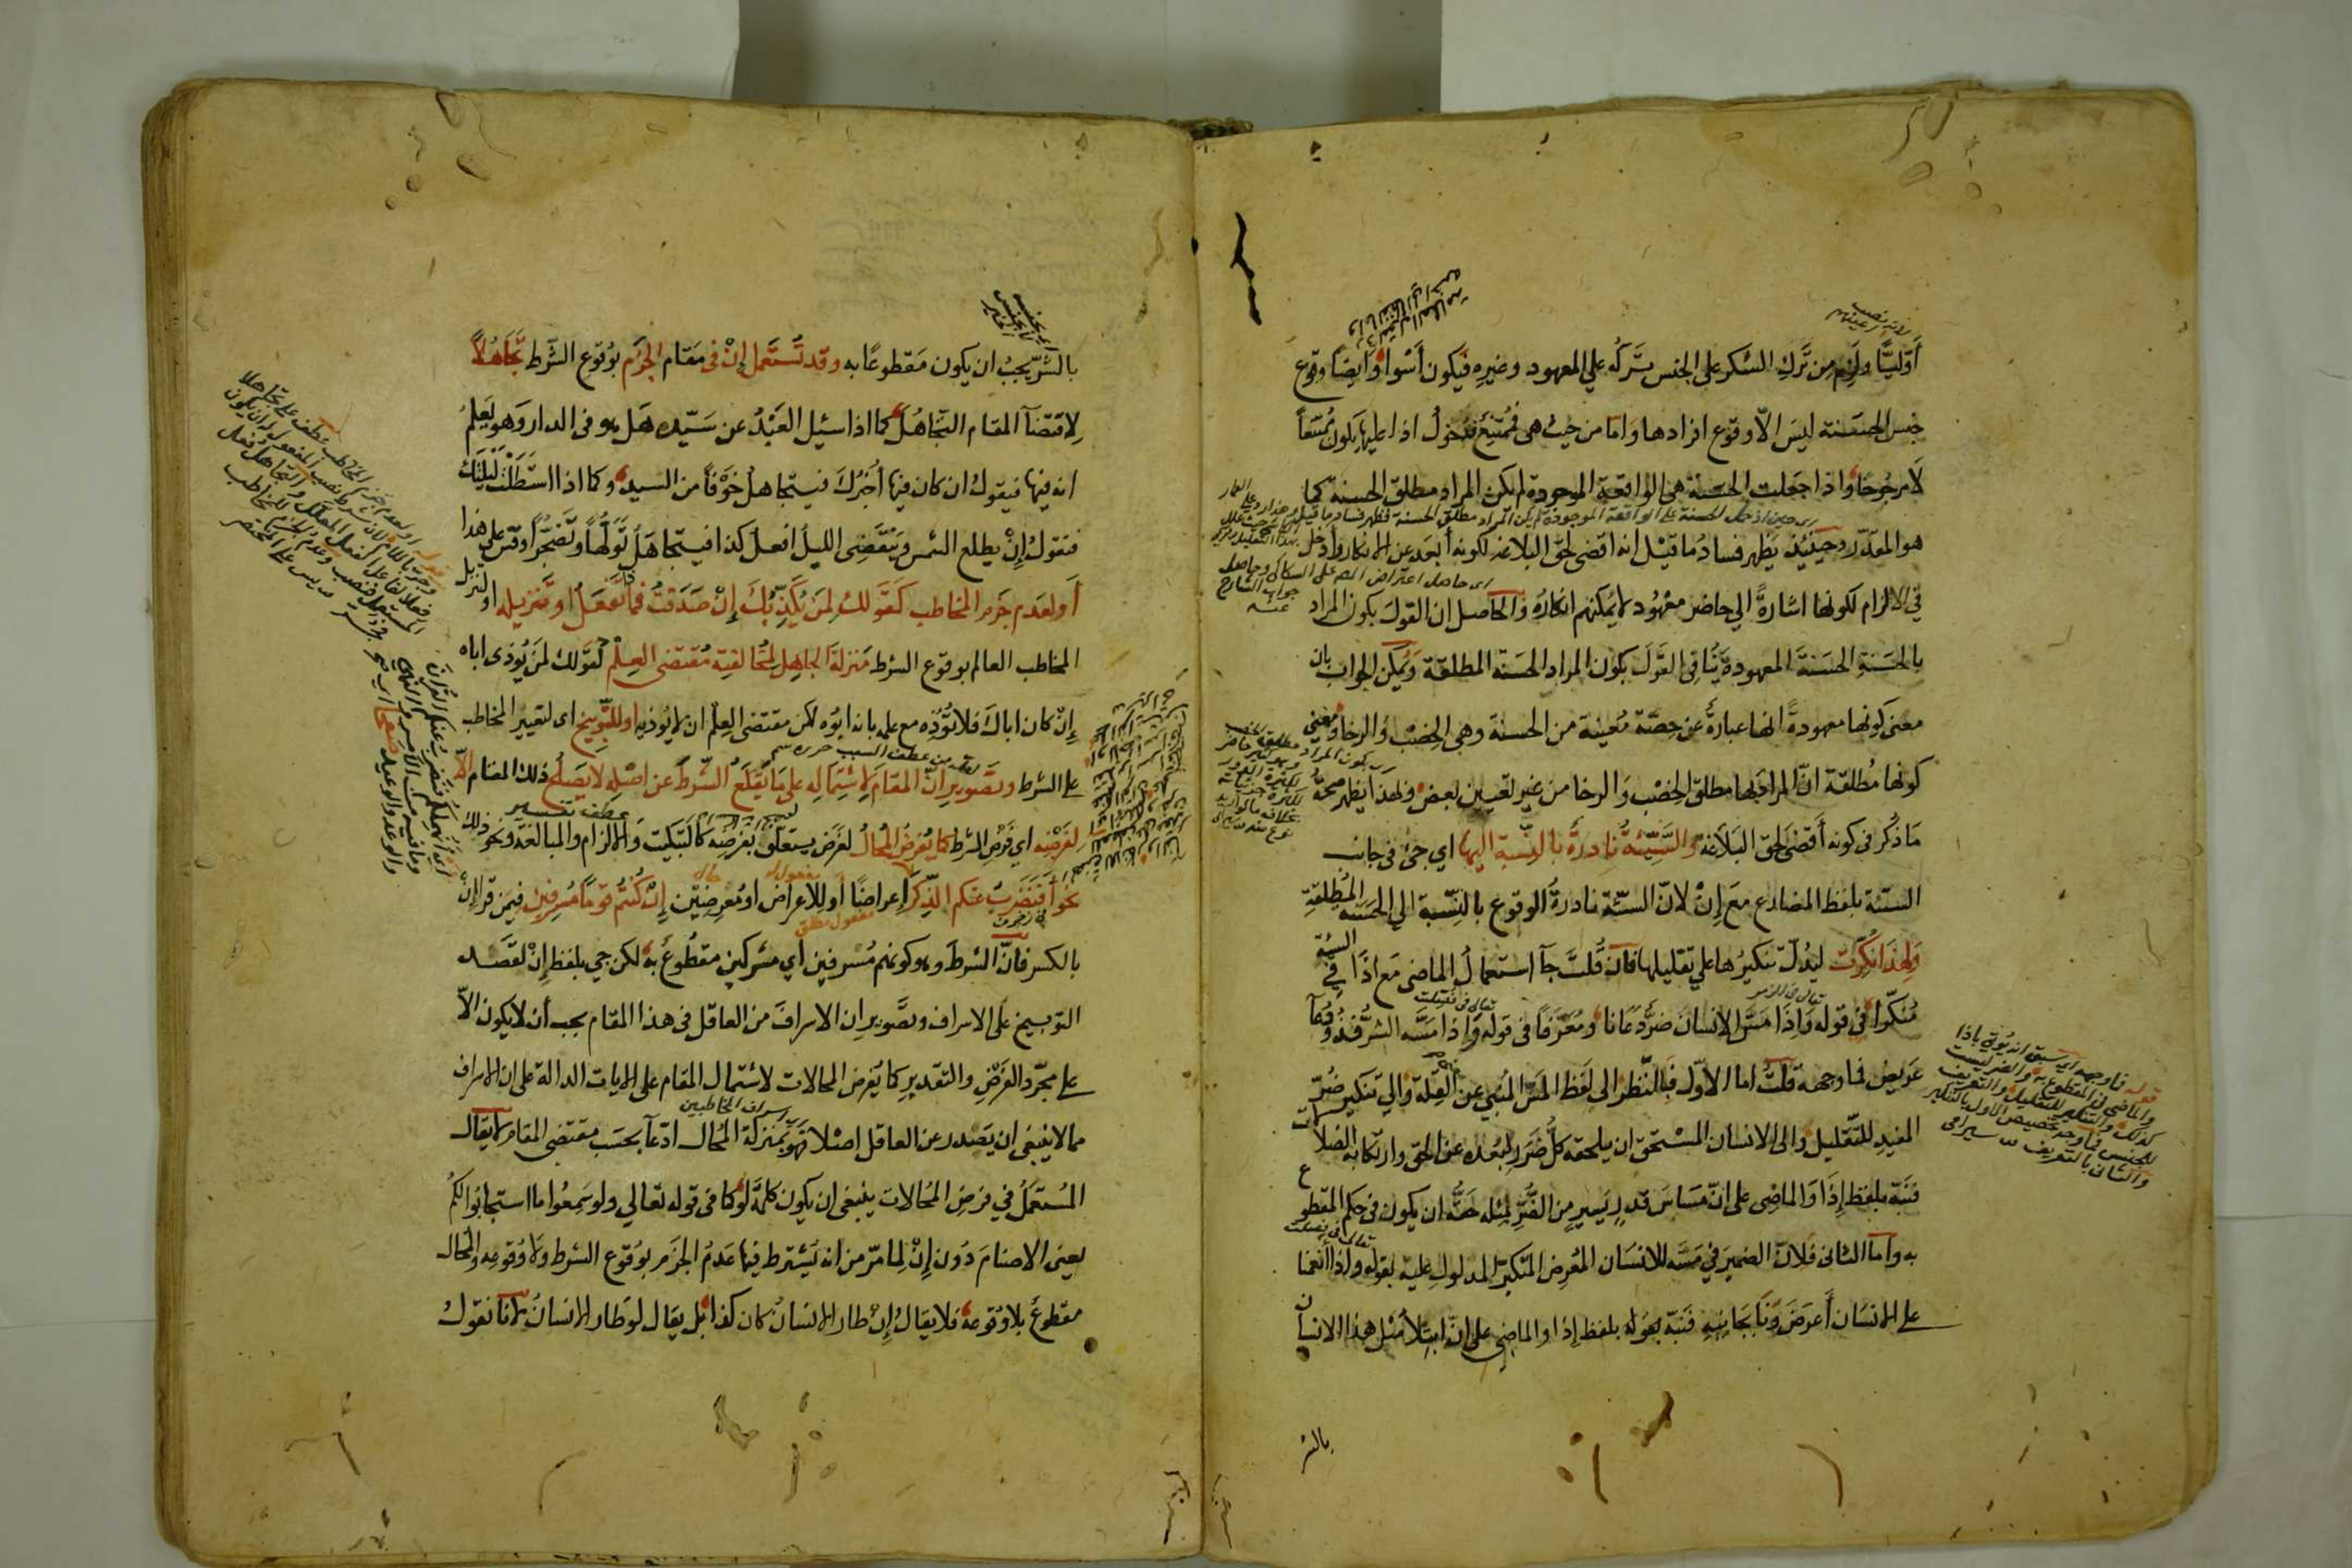 أوليا ولزم من ترك الشكر على الجنس تركه علي المعهود وغيره فيكون أسوا وايضا وقوع
جنس الحسنة ليس الاّ وقوع افرادها واما من حيث هى فممتنع فدخول اذا عليها يكون ممتنعاً
لا مرجوحا واذا جعلت الحسنة هى الواقعة الموجودة لم يكن المراد مطلق الحسنة كما
هو المقدّر وحينئذ يظهر فساد ما قيْل انه اقضى لحق البلاغه لكونه أبعد عن الانكار وأدخل
في الالزام لكونها اشارةً الي حاضر معْهُود لا يمكنهم انكارُه والحاصل ان القول بكون المراد
بالحسَنةِ الحسَنةَ المعهودة يُنافى القول بكون المراد الحسَنة المطلقة ويُمكن الجواب بان
معنى كونها معهودةً انها عبارةٌ عن حصّة مُعينة من الحسنة وهى الخصْب والرخا ومعنى
كونها مُطلقة انّ المراد بها مطلق الخصْب والرخا من غير تعيين لبعض ولهذا يظهر صحة
مَا ذُكر فى كونه أقضى لحق البَلاغة والسَّيّئة نادرةٌ بالنّسبة اليها اي جئ فى جانب
السيّئة بلفظ المضارع معَ إنْ لانّ السيّئة نادرةُ الوقوع بالنِّسبة الى الحسَنه المُطلقة
ولهذا نُكّرت ليدُلّ تنكيرُها على تقليلها فان قُلت جآ استعمالُ الماضى مَع اذَا فى السيئة
مُنكّرا فى قوله وَاِذَا مَسَّ الاِنسانَ ضرٌّ دَعَانا ومُعرّفاً فى قوله وَاذا مَسَّه الشرّ فذُو دُعآ
عَريض فما وجهه قلتُ اما الاوّل فبالنّظر الى لفظ المَسّ المُنبي عن القلّة والي تنكير ضُرّ
المفيدِ للتّقليل والى الانسان المسْتحق ان يلحقه كلُّ ضَرر لبُعده عن الحق وارتكابه الضلالات
فنبّه بلفظ إذَا وَالماضِى على انّ مسَاسَ قدرٍ يَسيرٍ مِن الضُّرّ لمثله حَقُّه ان يكون فى حكم المقطوع
به واما الثانى فلانّ الضميرَ فى مَسَّه للانسَان المُعرض المتكبّر المدلولِ عليه بقوله واذا أنعمنا
على الانسَان أعرَضَ وَنَأ بجَانبِهِ فنَبّه بقوله بلفظ إذا والماضِى على انّ ابتلا مثل هذا الانسان
بالشر
قوله فما وجهه اى سبق انه يُؤتي باذا
والماضى فى المقطوع به والضر ليست
كذلك والتنكير للتقليل والتعريف
للجنس فما وجه تخصيص الاول بالتنكير
والثانى بالتعريف سيرامى
بالشّرّ يجبُ ان يكون مَقطوعًا به وقد تُستَعمل إنْ فى مقام الجَزم بوُقوع الشّرط تجاهُلاً
لاقتضآ المقام التّجاهُلَ كما اذا سئيل العَبْدُ عن سَيّده هَل هو فى الدار وَهو يَعلم
انه فيها فيقول ان كان فيها أُخبرُكَ فيتجاهلُ خَوْفاً من السيد وكما اذا استَطلْتَ ليْلتك
فتقولُ إنْ يطلع الشمس ويَنْقَضِى الليلُ افعلْ كذا فيتجاهَلُ تَوَلُّهاً وتَضجُّراً وقس على هذا
أو لعدم جَزم المخاطب كقَولك لمَن يُكَذِّبُك إنْ صَدَقتُ فما تَفعَلُ او تنزيله او لتنزيل
المخاطب العالم بوقوع الشرط مَنزلةَ الجاهِل لمُخَالفتِه مُقتضى العِلْمِ كقَوْلك لمنْ يُوذى اباه
إِنْ كان اباكَ فلا تُؤْذِه مع علمه بانه ابوُه لكن مقتضى العِلْم ان لا يُوذيه اوِ للتّوبيخ اى لتعيير المخاطب
على الشرط وتصوير انّ المقام لاِشتمَالِه على مَا يَقلَعُ الشّرطَ عن اصْله لا يَصلُح ذلك المقام الّا
لفَرْضِه اى فَرْض الشرط كما يُفرضُ المُحالُ لغَرض يتعلق بفَرضِه كالتبكيت وَالالزام والمبالغة ونحو ذلك
نحو أفَنَضْربُ عَنكم الذِّكرَ إعراضًا أو للاِعراض او مُعرضِيْن إن كُنتُم قومًا مُسْرفِين فيمَن قرأ إنْ
بالكسر فانّ الشّرطَ وهو كونهم مُسْرفين أي مشركين مقطُوع به لكن جى بلفظ إنْ لقَصْد
التوبيخ على الاسراف وتصْوير ان الاسرافَ من العاقل فى هذا المقام يجب أن لا يكون الاّ
على مجرّد الفَرْضِ والتقدير كما يُفرض المحالات لاشتمال المقام على الايات الدالة على ان الاسراف
مما لا ينبغى ان يَصْدر عن العاقل اصْلا فهَو بمنزلة المُحال ادّعآ بحسَب مقتضى المقام لا يقال
المُستعمَلُ في فرضِ المُحالات ينبغى ان يكون كلمَة لَوْ كما فى قوله تعالي ولو سَمِعُوا ما استجابُوا لكُم
يعنى الاصنامَ دُون إنْ لِما مَرّ من انه يُشترط فيها عَدمُ الجَزم بوُقوع الشرط ولا وُقوعه والمحال
مقطوعٌ بلا وُقوعه فلا يقالُ إنْ طار الانسانُ كان كذا بل يقال لوْ طار الانسانُ لانا نقولُ